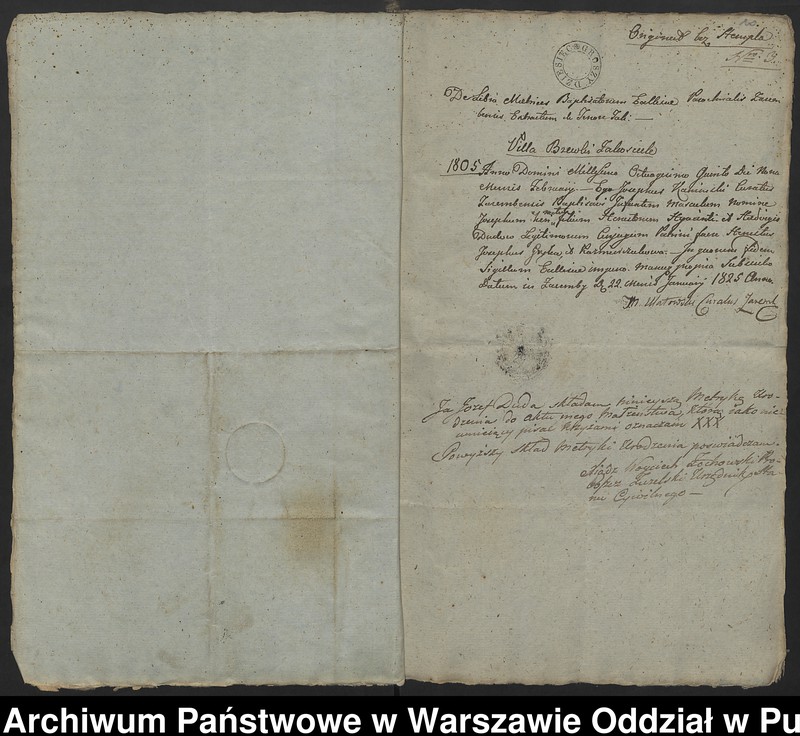 Originał bez Stempla
Nro 3.
DZIESIĘC GROSZY
De Libro Metrices Baptisatorum Ecclesiae Parochialis Zarem
bensis Extractum de Tenore Tali: —
Villa Brzewki Zakosciele
1805 Anno Domini Millesimo Octuagesimo Quinto Die Nona
Mensis Februarij — Ego Josephus Curatus
Zarembensis Baptisavi Infantem Masculum Nomine
Josephum natum filium Hyacinti et Hedvigis
Dudow Legitimorum Conjugum Patrini fuere
Josephus et — In quorum fidem
Sigillum Ecclesiae Manu propria Subscribo
Datum in Zaremby D. 22 Mensis January 1825 Anno
M. Curatus Zaremb
Ja Jozef Duda składam ninieyszą Metrykę Uro-
dzenia do aktu mego Małżeństwa, którą jako nie
umieiący pisać krzyżami oznaczam XXX
Powyższy Skład Metryki Urodzenia poswiadczam.
Xiądz Woyciech Żochowski Pro-
boszcz Urzędnik Sta
nu Cywilnego —
Archiwum Państwowe w Warszawie Oddział w Pu